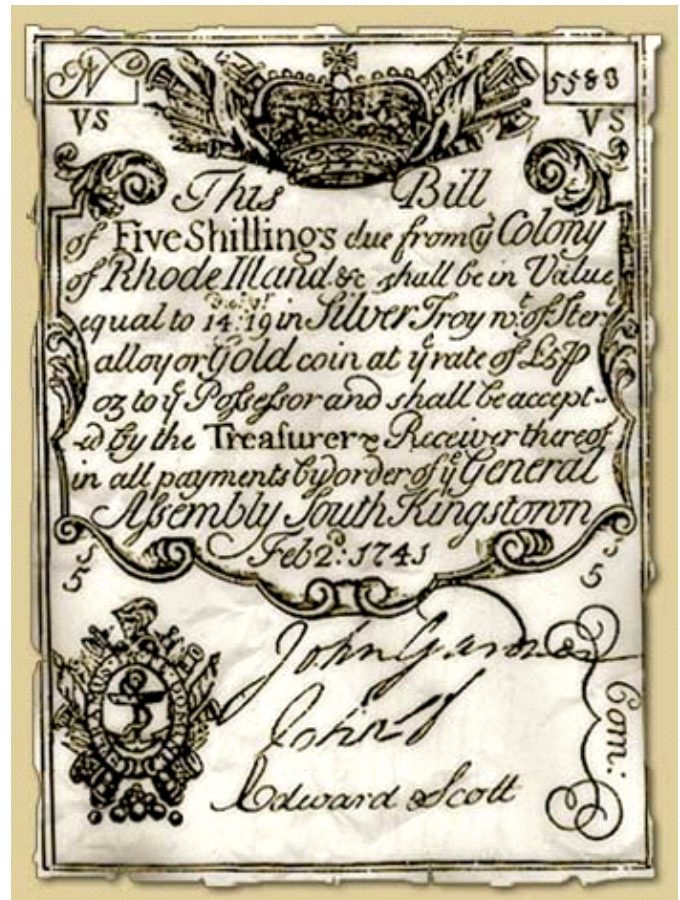 N 5583
VS VS
This Bill
of Five Shillings due from yͤ Colony
of Rhode Iſland &c shall be in Value
equal to 14:19 in Silver Troy wͭ. of Ster
alloy or Gold coin at yͤ rate of £5 ⅌
oz to yͤ Poſseſsor and shall be accept-
-ed by the Treaſurer & Receiver thereof
in all payments by order of yͤ General
Aſsembly South Kingstown
Feb 2ᵈ: 1741
s s
5 5
John Gardner
John
Edward Scott
Com: